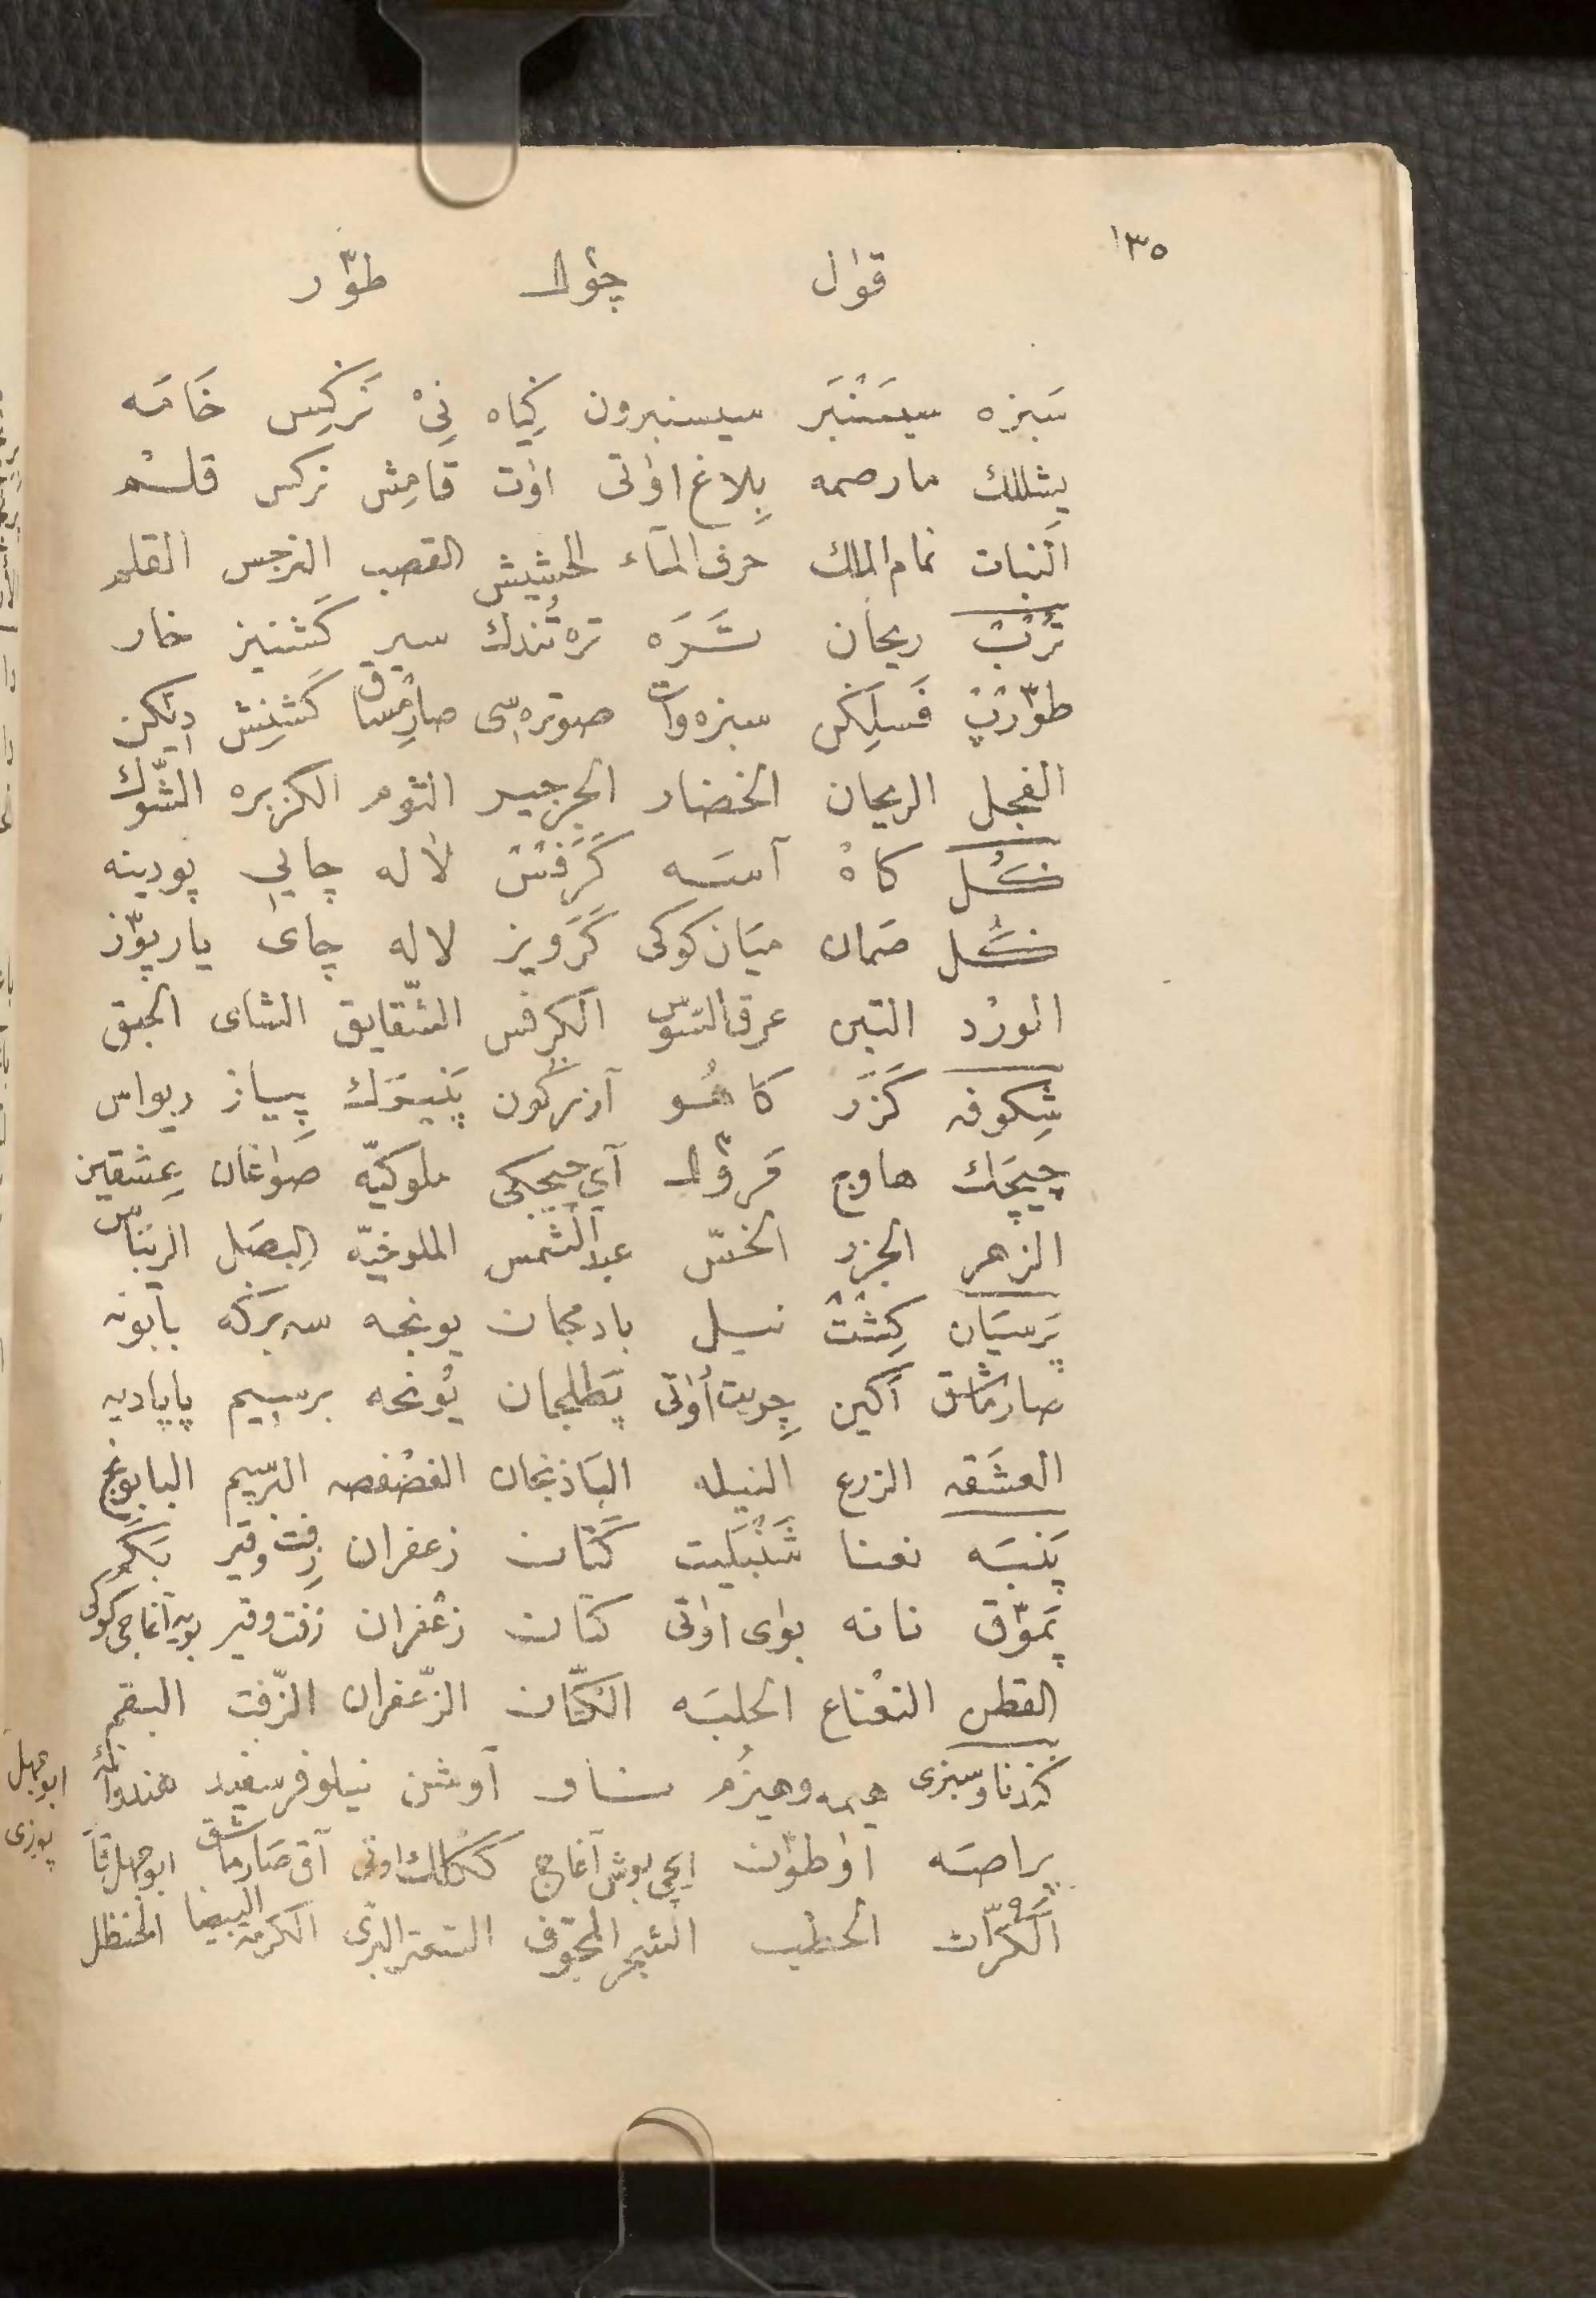 ١٣٥
قوٰل چؤل طوّر
سَبزه سیسَنْبَر سیسنبرون کِیاه نِیْ نَرکِس خَامَه
یشللك مارصمه بِلاغ اوٰتی اوٰت قامِش نرکس قلم
اَلنبات نمام الملك حرف المآء الحشیش القصب النرجس القلم
تُرُبْ ریحان تَرَه تره تُندك سیر کَشنیز خار
طوّرُپْ فَسلِکَن سبزه وات صوتره سّی صارِمْساق کَشنِش دیٖکن
الفجل الریحان الخضار الجرجیر الثوم الکزبره الشّوك
کُل کاهْ آسَه کَرَفْسْ لاله چایی پودینه
کُل صَمان میَان کوکی کَرَویز لاله چای یارپوّز
الوَرْد التبن عرق السّوس الکرفس الشّقایق الشای الحبق
شِکوفه کَزَر کاهُو آذرکون پَنیرَك پیاز ریواس
چیچَك هاوج آی چیچکی ملوکیّه صَوٰغان یمشقین
الزهر الجزر الخسّ عبد الشّمس الملوخیّه البصَل الریبّاس
پَرسیَان کِشْتْ نیل بادمجان یونجه سه برکه بابونه
صارمَاشق اَکین چِویت اُوٰتی پَطلجان یُونجه برسیم پاپادیه
العشَقه الزرع النیله البَاذنجان الفصْفصه البرسیم البابونج
پَنبَه نعنا شَنْبَلیت کَتَان زعفران زِفت وقیر بَکَم
پَموّق نانه بوٰی اوٰتی کتان زعْفران زفت وقیر بویه آغاجی کوکی
القطن النعْناع الحلبَه الکتّان الزّعفران الزّفت البقم
کَندنا وسبزی هیمه وهیزُم سناو آوشن نیلوفر سفید هندوانهٔ ابوجهل
پراصَه اوٰطوّن ایچی بوش آغاج کَکْلك اوتی آق صَارماشق ابوجهل قاپوزی
الکرّاث الحطب الشجر المجوّف السعتر البرّی الکرمة البیضا الحنظل